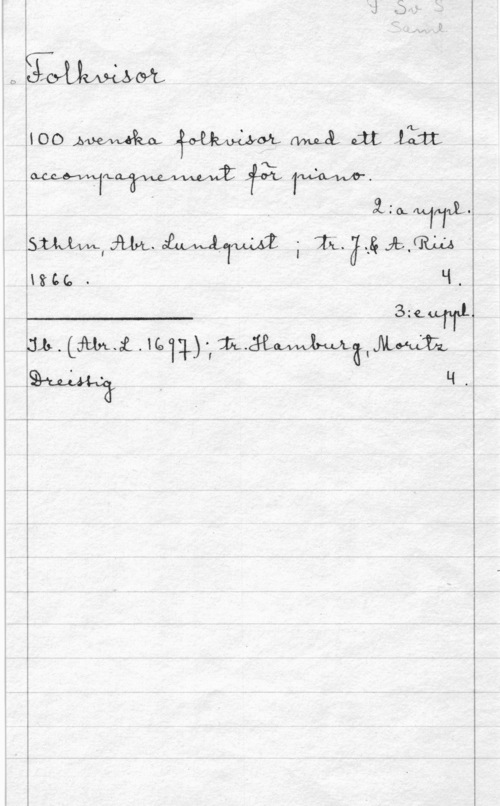 J Sv S
Saml.
Folkvisor
100 svenska folkvisor med ett lätt
accompagnement för piano.
2:a uppl.
Sthlm, Abr. Lundquist ; tr. J. & A. Riis
1866. 4.
3:e uppl.
Ib. (Abr. L. 1697); tr. Hamburg, Moritz
Dreissig 4.